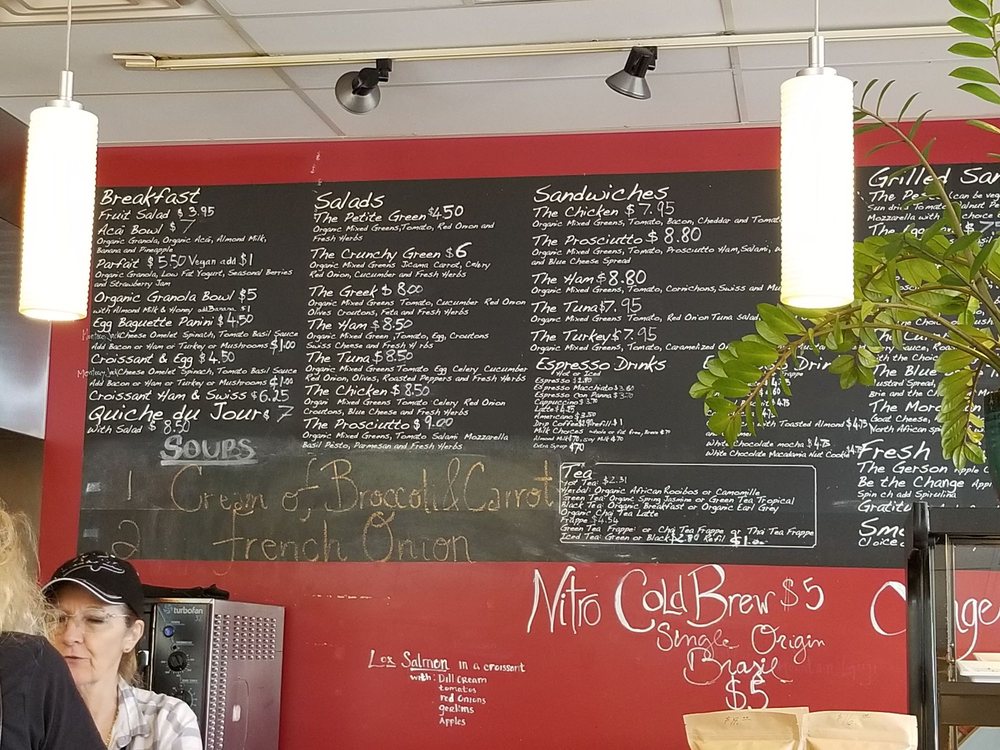 Breakfast
Fruit Salad $3.95
Acai Bowl $7
Organic Granola, Organic Acai, Almond Milk,
Banana and Pineapple
Parfait $5.50 Vegan add $1
Organic Granola, Low Fat Yogurt, Seasonal Berries
and Strawberry Jam
Organic Granola Bowl $5
with Almond Milk & Honey add Banana $1
Egg Baguette Panini $4.50
Cheese Omelet Spinach, Tomato Basil Sauce
Add Bacon or Ham or Turkey or Mushrooms $1.00
Croissant & Egg $4.50
Cheese Omelet Spinach, Tomato Basil Sauce
Add Bacon or Ham or Turkey or Mushrooms $1.00
Croissant Ham & Swiss $6.25
Quiche du Jour $7
with Salad $8.50
Salads
The Petite Green $4.50
Organic Mixed Greens, Tomato, Red Onion and
Fresh Herbs
The Crunchy Green $6
Organic Mixed Greens Jicama Carrot, Celery
Red Onion, Cucumber and Fresh Herbs
The Greek $8.00
Organic Mixed Greens Tomato, Cucumber Red Onion
Olives Croutons, Feta and Fresh Herbs
The Ham $8.50
Organic Mixed Green, Tomato, Egg, Croutons
Swiss Cheese and Fresh Herbs
The Tuna $8.50
Organic Mixed Greens Tomato Egg Celery Cucumber
Red Onion, Olives, Roasted Peppers and Fresh Herbs
The Chicken $8.50
Organic Mixed Greens Tomato Celery Red Onion
Croutons, Blue Cheese and Fresh Herbs
The Prosciutto $9.00
Organic Mixed Greens, Tomato Salami Mozzarella
Basil Pesto, Parmesan and Fresh Herbs
Sandwiches
The Chicken $7.95
Organic Mixed Greens, Tomato, Bacon, Cheddar and Tomato
The Prosciutto $8.80
Organic Mixed Greens, Tomato, Prosciutto Ham, Salami,
and Blue Cheese Spread
The Ham $8.80
Organic Mixed Greens, Tomato, Cornichons, Swiss and Mu
The Tuna $7.95
Organic Mixed Greens, Tomato, Red Onion Tuna Salad
The Turkey $7.95
Organic Mixed Greens, Tomato, Caramelized On
Espresso Drinks
Hot or Iced
Espresso $2.80
Espresso Macchiato
Espresso Con Panna
Cappuccino
Latte
Americano
Drip Coffee Refill $1
Milk Choices
Almond Milk Soy Milk
Extra Syrup
Drin
Frappe
with Toasted Almond $4.75
White Chocolate mocha $4.75
White Chocolate Macadamia Nut Cookie
Grilled San
can be veg
Mozzarella with choice
with the Choice
The Blue
Mustard Spread,
Brie and the Choi
The Moro
Goat Cheese,
North African sp
Fresh
The Gerson Apple
Be the Change Appl
Spinach add Spirulina
Gratitu
Smo
Choice
SOUPS
1 Cream of Broccoli & Carrot
2 French Onion
Tea
Hot Tea: $2.31
Herbal: Organic African Rooibos or Camomille
Green Tea: Organic Spring Jasmine or Green Tea Tropical
Black Tea: Organic Breakfast or Organic Earl Grey
Organic Chai Tea Latte
Frappe $4.54
Green Tea Frappe or Chai Tea Frappe or Thai Tea Frappe
Iced Tea: Green or Black $2.80 Refil $1.00
Nitro Cold Brew $5
Single Origin
Brasil
$5
Lox Salmon in a croissant
with: Dill cream
tomatos
red Onions
Apples
turbofan